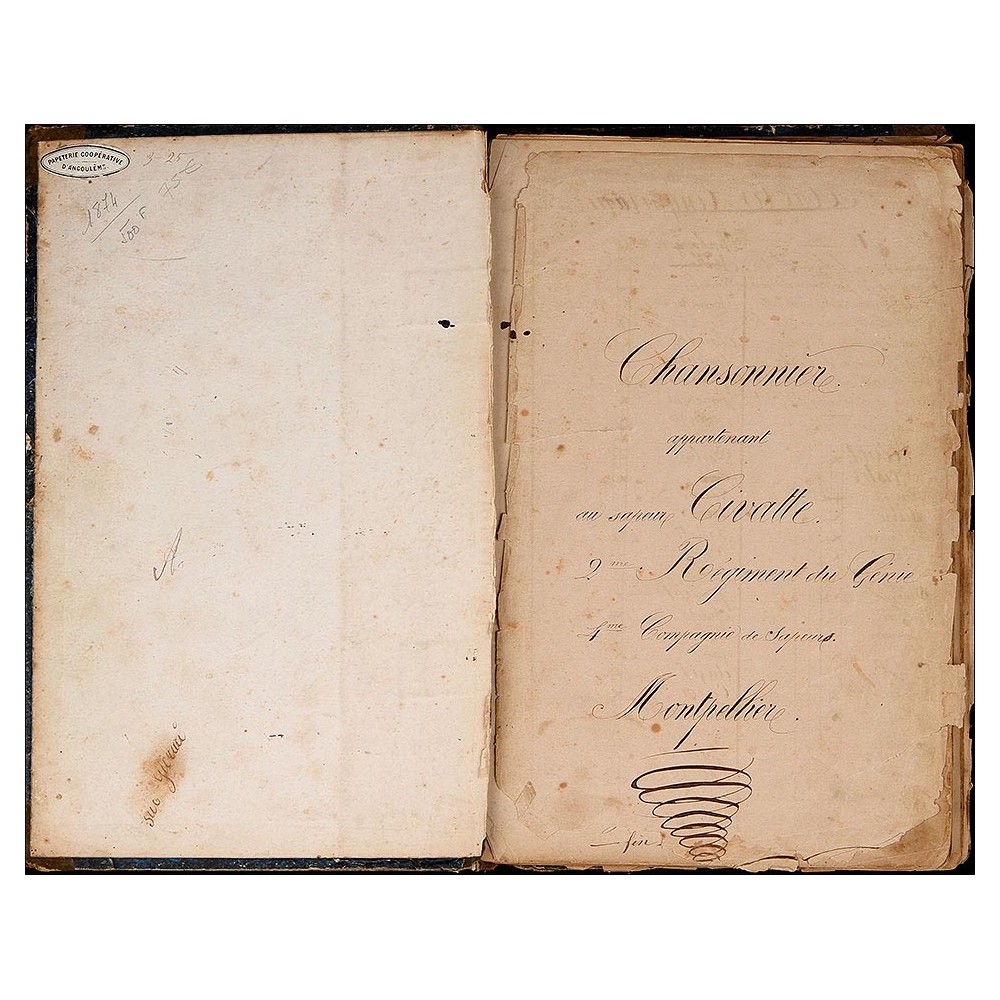 PAPETERIE COOPÉRATIVE
D'ANGOULÊME
3 - 25
75 €
1874
500 F
Chansonnier.
appartenant
au sapeur Civatte.
2me Régiment du Génie
4me Compagnie de Sapeurs.
Montpellier.